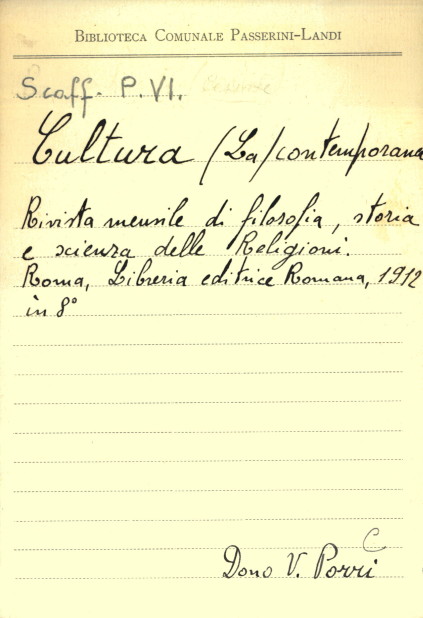 BIBLIOTECA COMUNALE PASSERINI-LANDI
Scaff. P. VI.
Cultura (La) contemporana
Rivista mensile di filosofia, storia
e scienza delle Religioni.
Roma, Libreria editrice Romana, 1912
in 8°
C
Dono V. Porri